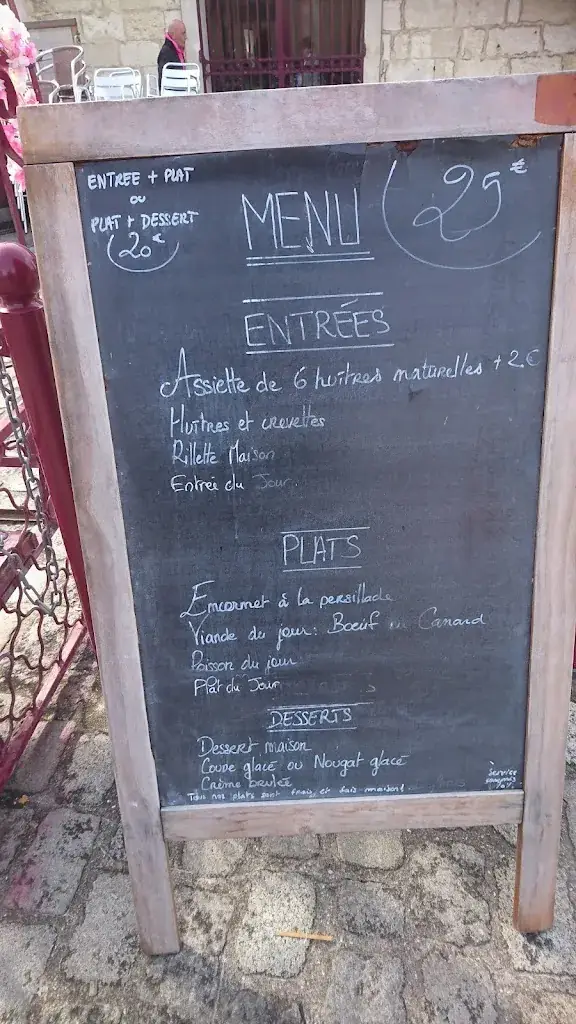 ENTREE + PLAT
ou
PLAT + DESSERT
20€
MENU
25€
ENTRÉES
Assiette de 6 huîtres naturelles + 2€
Huîtres et crevettes
Rillette Maison
Entrée du Jour
PLATS
Encornet à la persillade
Viande du jour: Boeuf ou Canard
Poisson du jour
Plat du Jour
DESSERTS
Dessert maison
Coupe glacé ou Nougat glacé
Crème brulée
Tous nos plats sont frais et fais maison!
Service